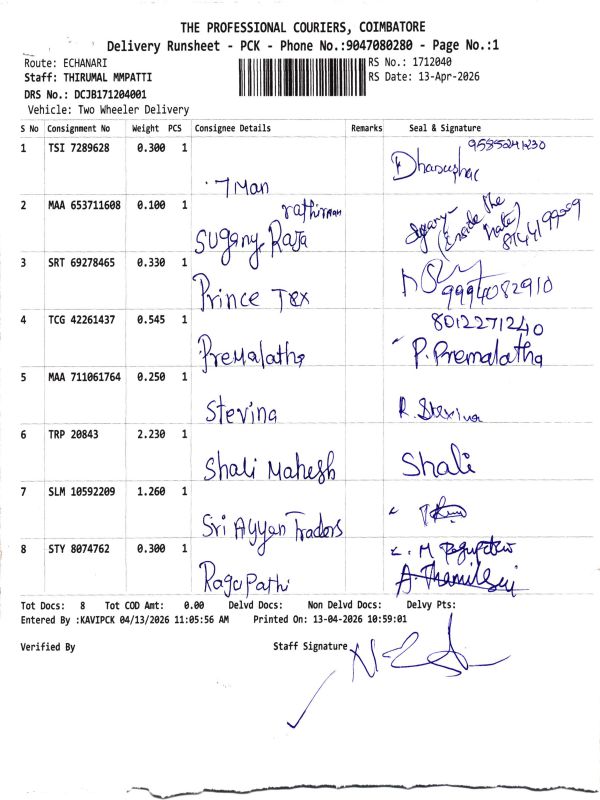 THE PROFESSIONAL COURIERS, COIMBATORE
Delivery Runsheet - PCK - Phone No.:9047080280 - Page No.:1
Route: ECHANARI
RS No.: 1712040
Staff: THIRUMAL MMPATTI
RS Date: 13-Apr-2026
DRS No.: DCJB171204001
Vehicle: Two Wheeler Delivery
S No Consignment No Weight PCS Consignee Details Remarks Seal & Signature
1 TSI 7289628 0.300 1
7 Man
2 MAA 653711608 0.100 1
Sugany Raja
(Inside the
3 SRT 69278465 0.330 1
Prince Tex 9994082910
4 TCG 42261437 0.545 1 8012271240
Premalatha P. Premalatha
5 MAA 711061764 0.250 1
Stevina R. Stevina
6 TRP 20843 2.230 1
Shali Mahesh Shali
7 SLM 10592209 1.260 1
Sri Ayyan Traders
8 STY 8074762 0.300 1
Ragupathi
Tot Docs: 8 Tot COD Amt: 0.00 Delvd Docs: Non Delvd Docs: Delvy Pts:
Entered By :KAVIPCK 04/13/2026 11:05:56 AM Printed On: 13-04-2026 10:59:01
Verified By Staff Signature